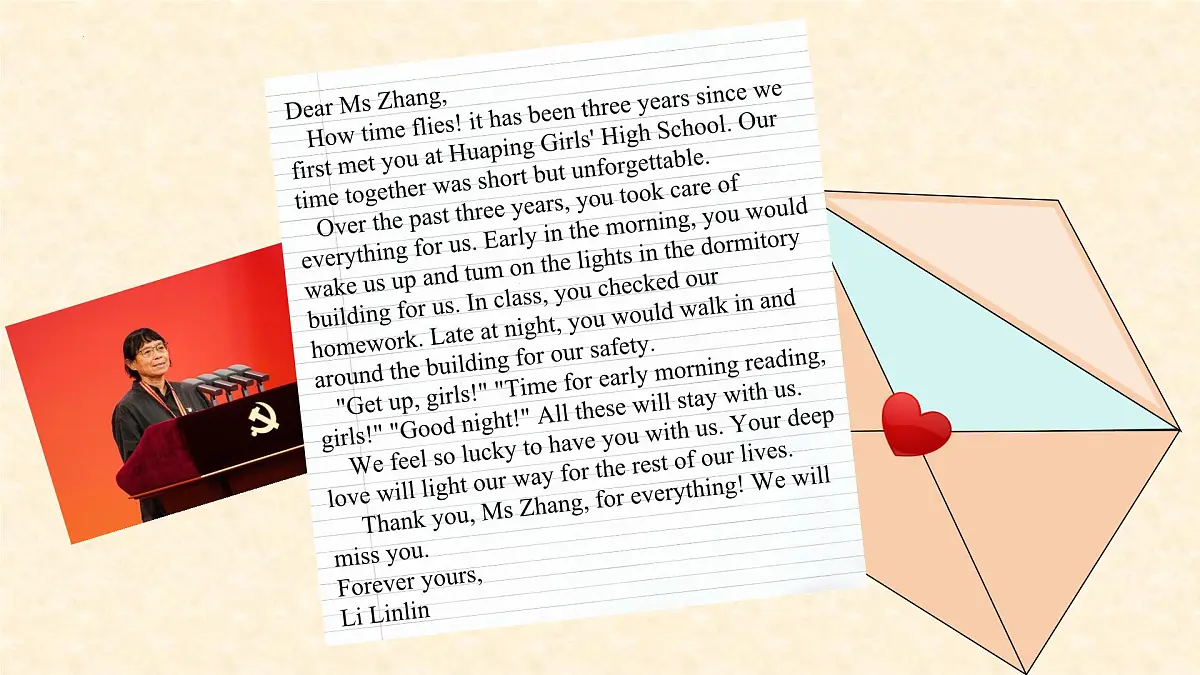 Dear Ms Zhang,
How time flies! it has been three years since we
first met you at Huaping Girls' High School. Our
time together was short but unforgettable.
Over the past three years, you took care of
everything for us. Early in the morning, you would
wake us up and tum on the lights in the dormitory
building for us. In class, you checked our
homework. Late at night, you would walk in and
around the building for our safety.
"Get up, girls!" "Time for early morning reading,
girls!" "Good night!" All these will stay with us.
We feel so lucky to have you with us. Your deep
love will light our way for the rest of our lives.
Thank you, Ms Zhang, for everything! We will
miss you.
Forever yours,
Li Linlin